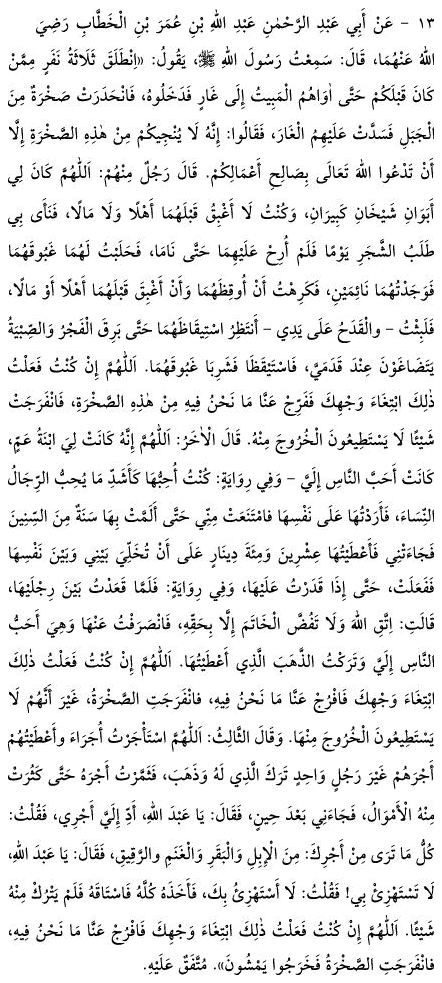 ١٣ - عَنْ أَبِي عَبْدِ الرَّحْمٰنِ عَبْدِ اللهِ بْنِ عُمَرَ بْنِ الْخَطَّابِ رَضِيَ
اللهُ عَنْهُمَا، قَالَ: سَمِعْتُ رَسُولَ اللهِ ﷺ، يَقُولُ: «اِنْطَلَقَ ثَلَاثَةُ نَفَرٍ مِمَّنْ
كَانَ قَبْلَكُمْ حَتَّى اٰوَاهُمُ الْمَبِيتُ إِلَى غَارٍ فَدَخَلُوهُ، فَانْحَدَرَتْ صَخْرَةٌ مِنَ
الْجَبَلِ فَسَدَّتْ عَلَيْهِمُ الْغَارَ، فَقَالُوا: إِنَّهُ لَا يُنْجِيكُمْ مِنْ هٰذِهِ الصَّخْرَةِ إِلَّا
أَنْ تَدْعُوا اللهَ تَعَالَى بِصَالِحِ أَعْمَالِكُمْ. قَالَ رَجُلٌ مِنْهُمْ: اَللّٰهُمَّ كَانَ لِي
أَبَوَانِ شَيْخَانِ كَبِيرَانِ، وَكُنْتُ لَا أَغْبِقُ قَبْلَهُمَا أَهْلًا وَلَا مَالًا، فَنَأَى بِي
طَلَبُ الشَّجَرِ يَوْمًا فَلَمْ أُرِحْ عَلَيْهِمَا حَتَّى نَامَا، فَحَلَبْتُ لَهُمَا غَبُوقَهُمَا
فَوَجَدْتُهُمَا نَائِمَيْنِ، فَكَرِهْتُ أَنْ أُوقِظَهُمَا وَأَنْ أَغْبِقَ قَبْلَهُمَا أَهْلًا أَوْ مَالًا،
فَلَبِثْتُ - والْقَدَحُ عَلَى يَدِي - أَنتَظِرُ اسْتِيقَاظَهُمَا حَتَّى بَرِقَ الْفَجْرُ وَالصِّبْيَةُ
يَتَضَاغَوْنَ عِنْدَ قَدَمَيَّ، فَاسْتَيْقَظَا فَشَرِبَا غَبُوقَهُمَا. اَللّٰهُمَّ إِنْ كُنْتُ فَعَلْتُ
ذٰلِكَ ابْتِغَاءَ وَجْهِكَ فَفَرِّجْ عَنَّا مَا نَحْنُ فِيهِ مِنْ هٰذِهِ الصَّخْرَةِ، فَانْفَرَجَتْ
شَيْئًا لَا يَسْتَطِيعُونَ الْخُرُوجَ مِنْهُ. قَالَ الْاٰخَرُ: اَللّٰهُمَّ إِنَّهُ كَانَتْ لِيَ ابْنَةُ عَمٍّ،
كَانَتْ أَحَبَّ النَّاسِ إِلَيَّ - وَفِي رِوَايَةٍ: كُنْتُ أُحِبُّهَا كَأَشَدِّ مَا يُحِبُّ الرِّجَالُ
النِّسَاءَ، فَأَرَدْتُهَا عَلَى نَفْسِهَا فامْتَنَعَتْ مِنِّي حَتَّى أَلَمَّتْ بِهَا سَنَةٌ مِنَ السِّنِينَ
فَجَاءَتْنِي فَأَعْطَيْتُهَا عِشْرِينَ وَمِئَةَ دِينَارٍ عَلَى أَنْ تُخَلِّيَ بَيْنِي وَبَيْنَ نَفْسِهَا
فَفَعَلَتْ، حَتَّى إِذَا قَدَرْتُ عَلَيْهَا، وَفِي رِوَايَةٍ: فَلَمَّا قَعَدْتُ بَيْنَ رِجْلَيْهَا،
قَالَتِ: اِتَّقِ اللهَ وَلَا تَفُضَّ الْخَاتَمَ إِلَّا بِحَقِّهِ، فَانْصَرَفْتُ عَنْهَا وَهِيَ أَحَبُّ
النَّاسِ إِلَيَّ وَتَرَكْتُ الذَّهَبَ الَّذِي أَعْطَيْتُهَا. اَللّٰهُمَّ إِنْ كُنْتُ فَعَلْتُ ذٰلِكَ
ابْتِغَاءَ وَجْهِكَ فَافْرُجْ عَنَّا مَا نَحْنُ فِيهِ، فانْفَرَجَتِ الصَّخْرَةُ، غَيْرَ أَنَّهُمْ لَا
يَسْتَطِيعُونَ الْخُرُوجَ مِنْهَا. وَقَالَ الثَّالِثُ: اَللّٰهُمَّ اسْتَأْجَرْتُ أُجَرَاءَ وأَعْطَيْتُهُمْ
أَجْرَهُمْ غَيْرَ رَجُلٍ وَاحِدٍ تَرَكَ الَّذِي لَهُ وَذَهَبَ، فَثَمَّرْتُ أَجْرَهُ حَتَّى كَثُرَتْ
مِنْهُ الْأَمْوَالُ، فَجَاءَنِي بَعْدَ حِينٍ، فَقَالَ: يَا عَبْدَ اللهِ، أَدِّ إِلَيَّ أَجْرِي، فَقُلْتُ:
كُلُّ مَا تَرَى مِنْ أَجْرِكَ: مِنَ الْإِبِلِ وَالْبَقَرِ وَالْغَنَمِ والرَّقِيقِ، فَقَالَ: يَا عَبْدَ اللهِ،
لَا تَسْتَهْزِئْ بِي! فَقُلْتُ: لَا أَسْتَهْزِئُ بِكَ، فَأَخَذَهُ كُلَّهُ فَاسْتَاقَهُ فَلَمْ يَتْرُكْ مِنْهُ
شَيْئًا. اَللّٰهُمَّ إِنْ كُنْتُ فَعَلْتُ ذٰلِكَ ابْتِغَاءَ وَجْهِكَ فَافْرُجْ عَنَّا مَا نَحْنُ فِيهِ،
فانْفَرَجَتِ الصَّخْرَةُ فَخَرَجُوا يَمْشُونَ». مُتَّفَقٌ عَلَيْهِ.